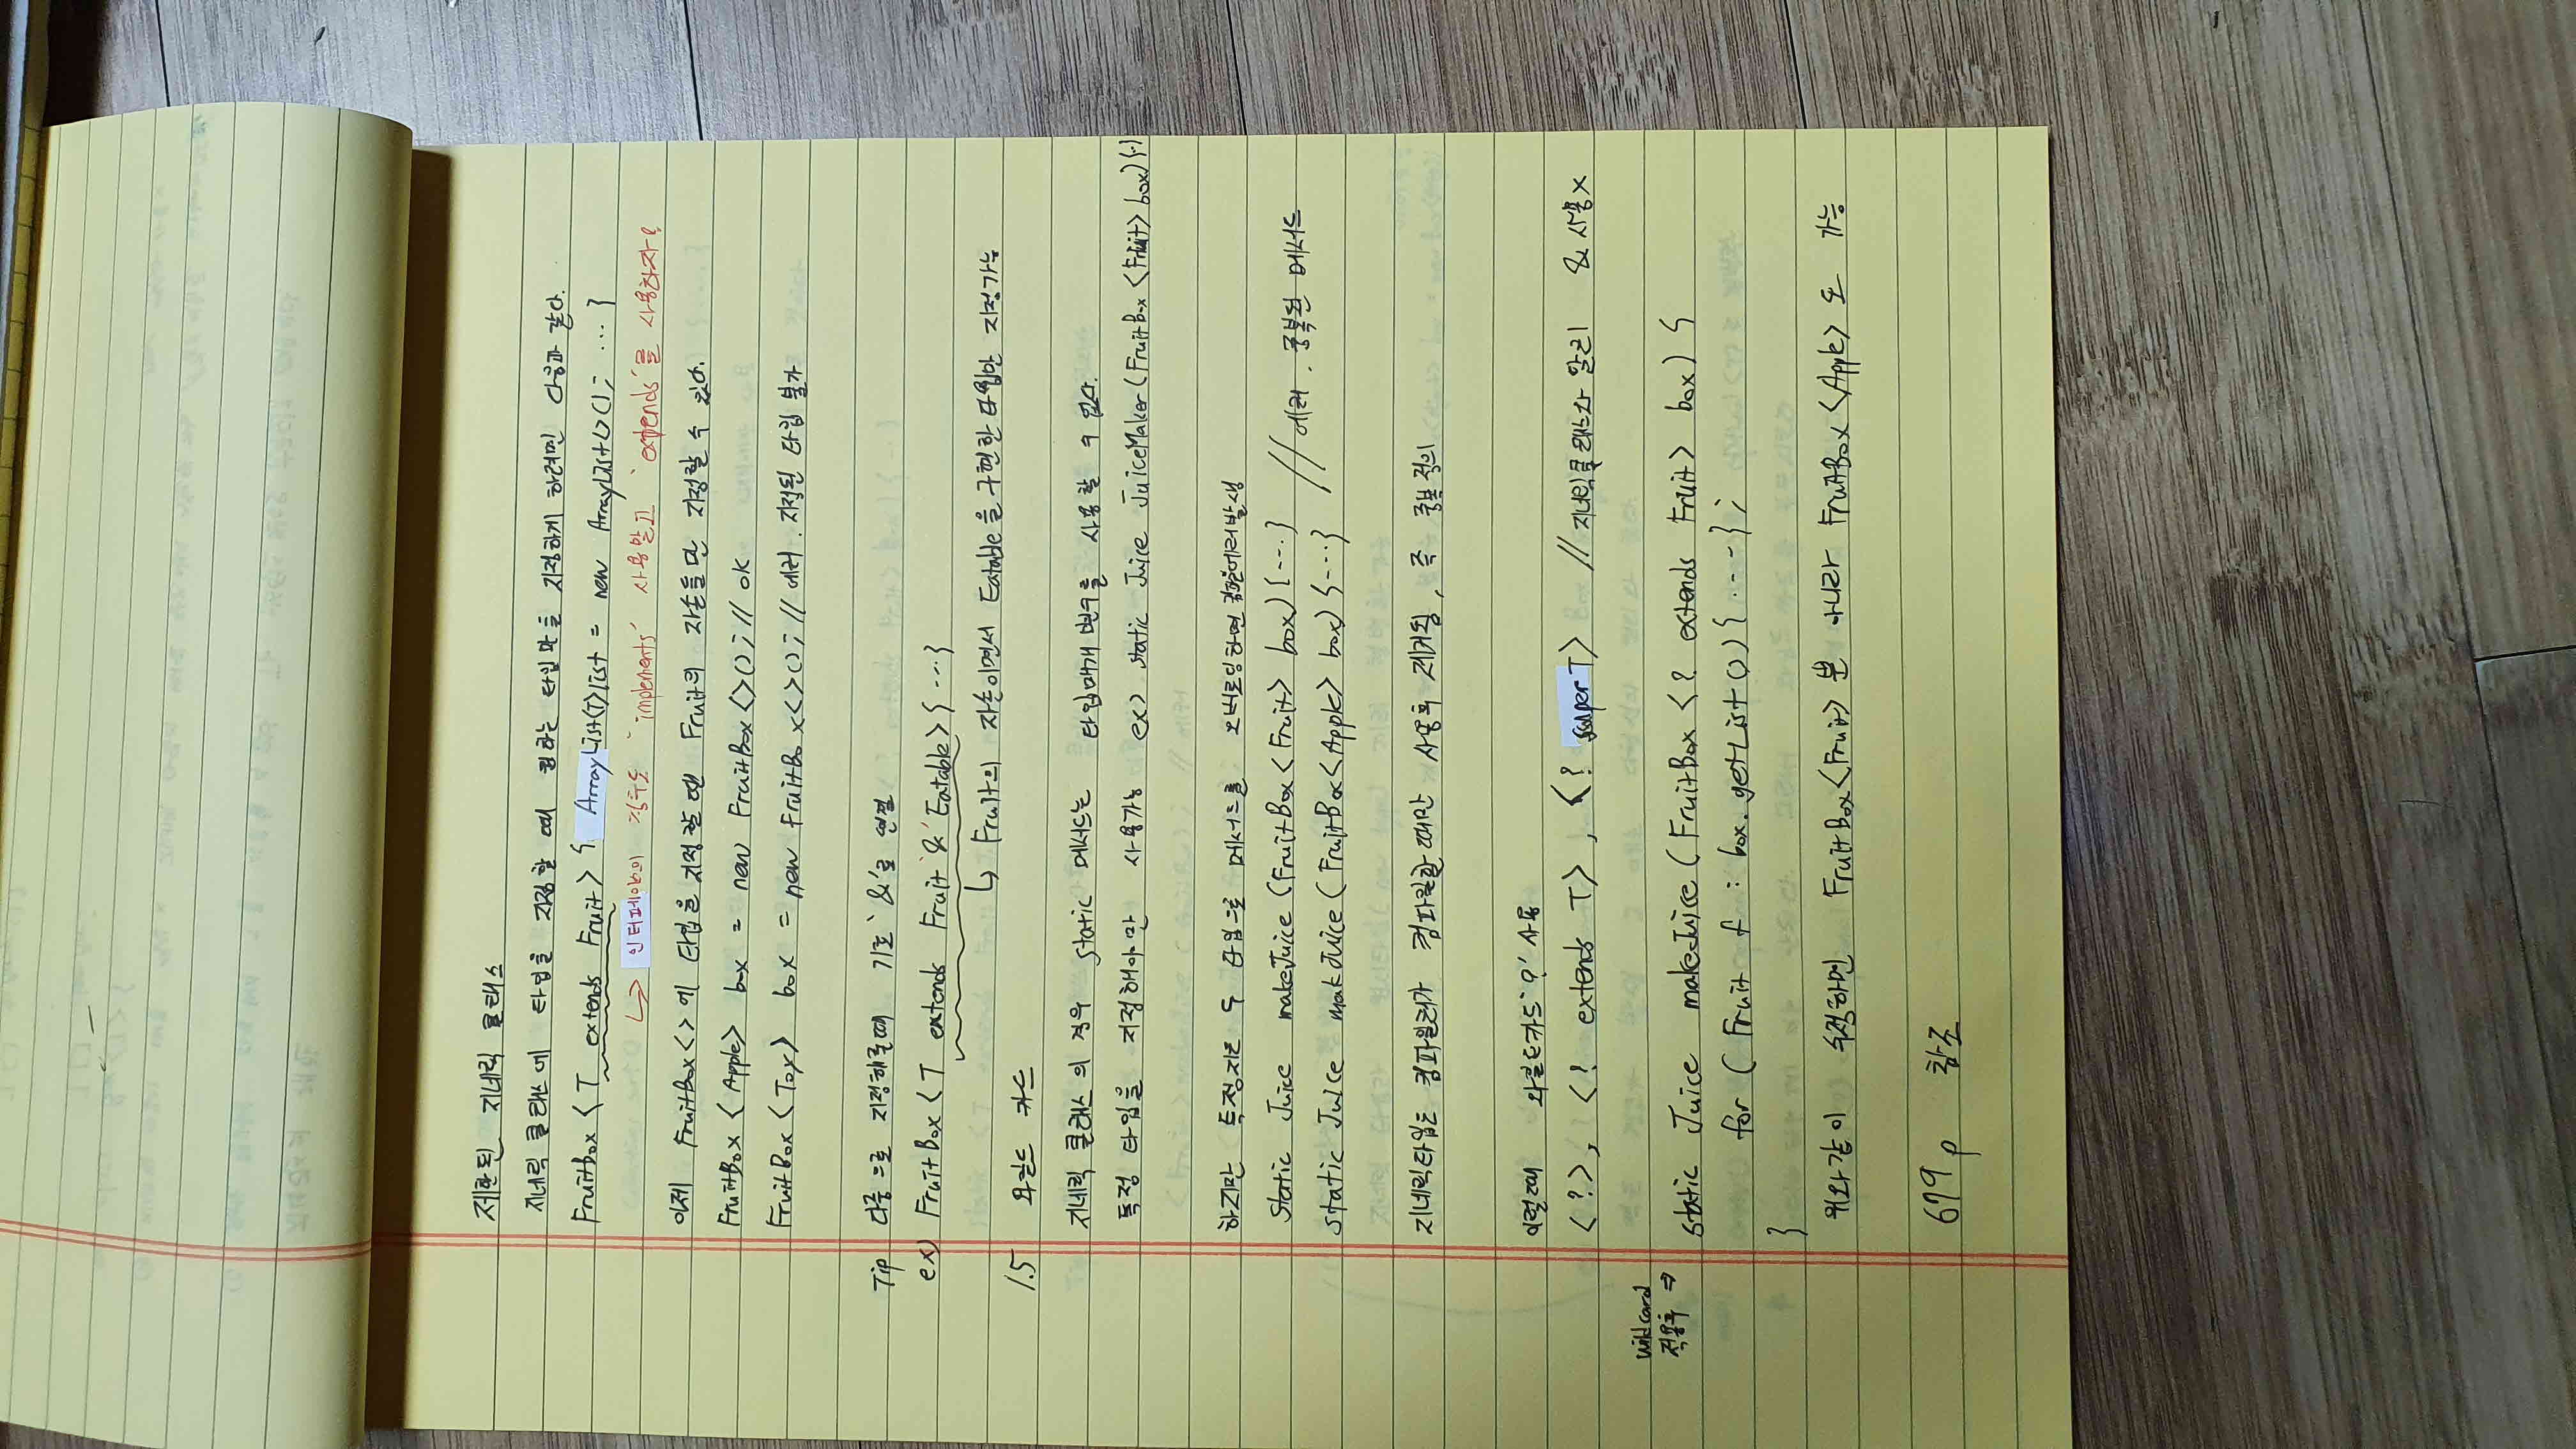 제한된 지네릭 클래스
지네릭 클래스에 타입을 지정할 때 원하는 타입만을 지정하게 하려면 다음과 같다.
FruitBox <T extends Fruit> { ArrayList(T)list = new ArrayList<>(); ... }
↳ 인터페이스의 경우도 'implements' 사용말고 'extends'를 사용하자!
이제 FruitBox<>에 타입을 지정할 땐 Fruit의 자손들만 지정할 수 있다.
FruitBox <Apple> box = new FruitBox<>(); // OK
FruitBox <Toy> box = new FruitBox<>(); // 에러. 지정된 타입 불가
Tip 다중으로 지정해줄때 기호 '&'로 연결
ex) FruitBox <T extends Fruit '&' Eatable> { ... }
↳ Fruit의 자손이면서 Eatable을 구현한 타입만 지정가능
1.5 와일드 카드
지네릭 클래스의 경우 static 메서드는 타입매개변수를 사용할 수 없다.
특정 타입을 지정해야만 사용가능 ex) static Juice JuiceMaker(FruitBox <Fruit> box){..}
하지만 특정지은 두 타입으로 메서드를 오버로딩하면 컴파일에러발생
static Juice makeJuice (FruitBox<Fruit> box) {...} // 에러. 중복된 메서드
static Juice makJuice (FruitBox<Apple> box) {...}
지네릭타입은 컴파일러가 컴파일할때만 사용후 제거됨, 즉 중복정의
이럴때 와일드카드 '?' 사용
<?>, <? extends T>, <? super T> // 지네릭클래스와 달리 & 사용x
wildcard
적용후 ⇒
static Juice makeJuice (FruitBox <? extends Fruit> box) {
for (Fruit f : box.getList()) { ... };
}
위와같이 수정하면 FruitBox<Fruit> 뿐 아니라 FruitBox <Apple> 도 가능
679p 참조